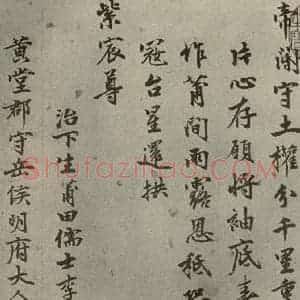 帝守土權分千里重
片心存願將袖底
作莆間雨露恩祇
冠台星還拱
紫宸尊
治下生莆田儒士李
黃堂郡守岳侯明府大
Shufaziliao.com